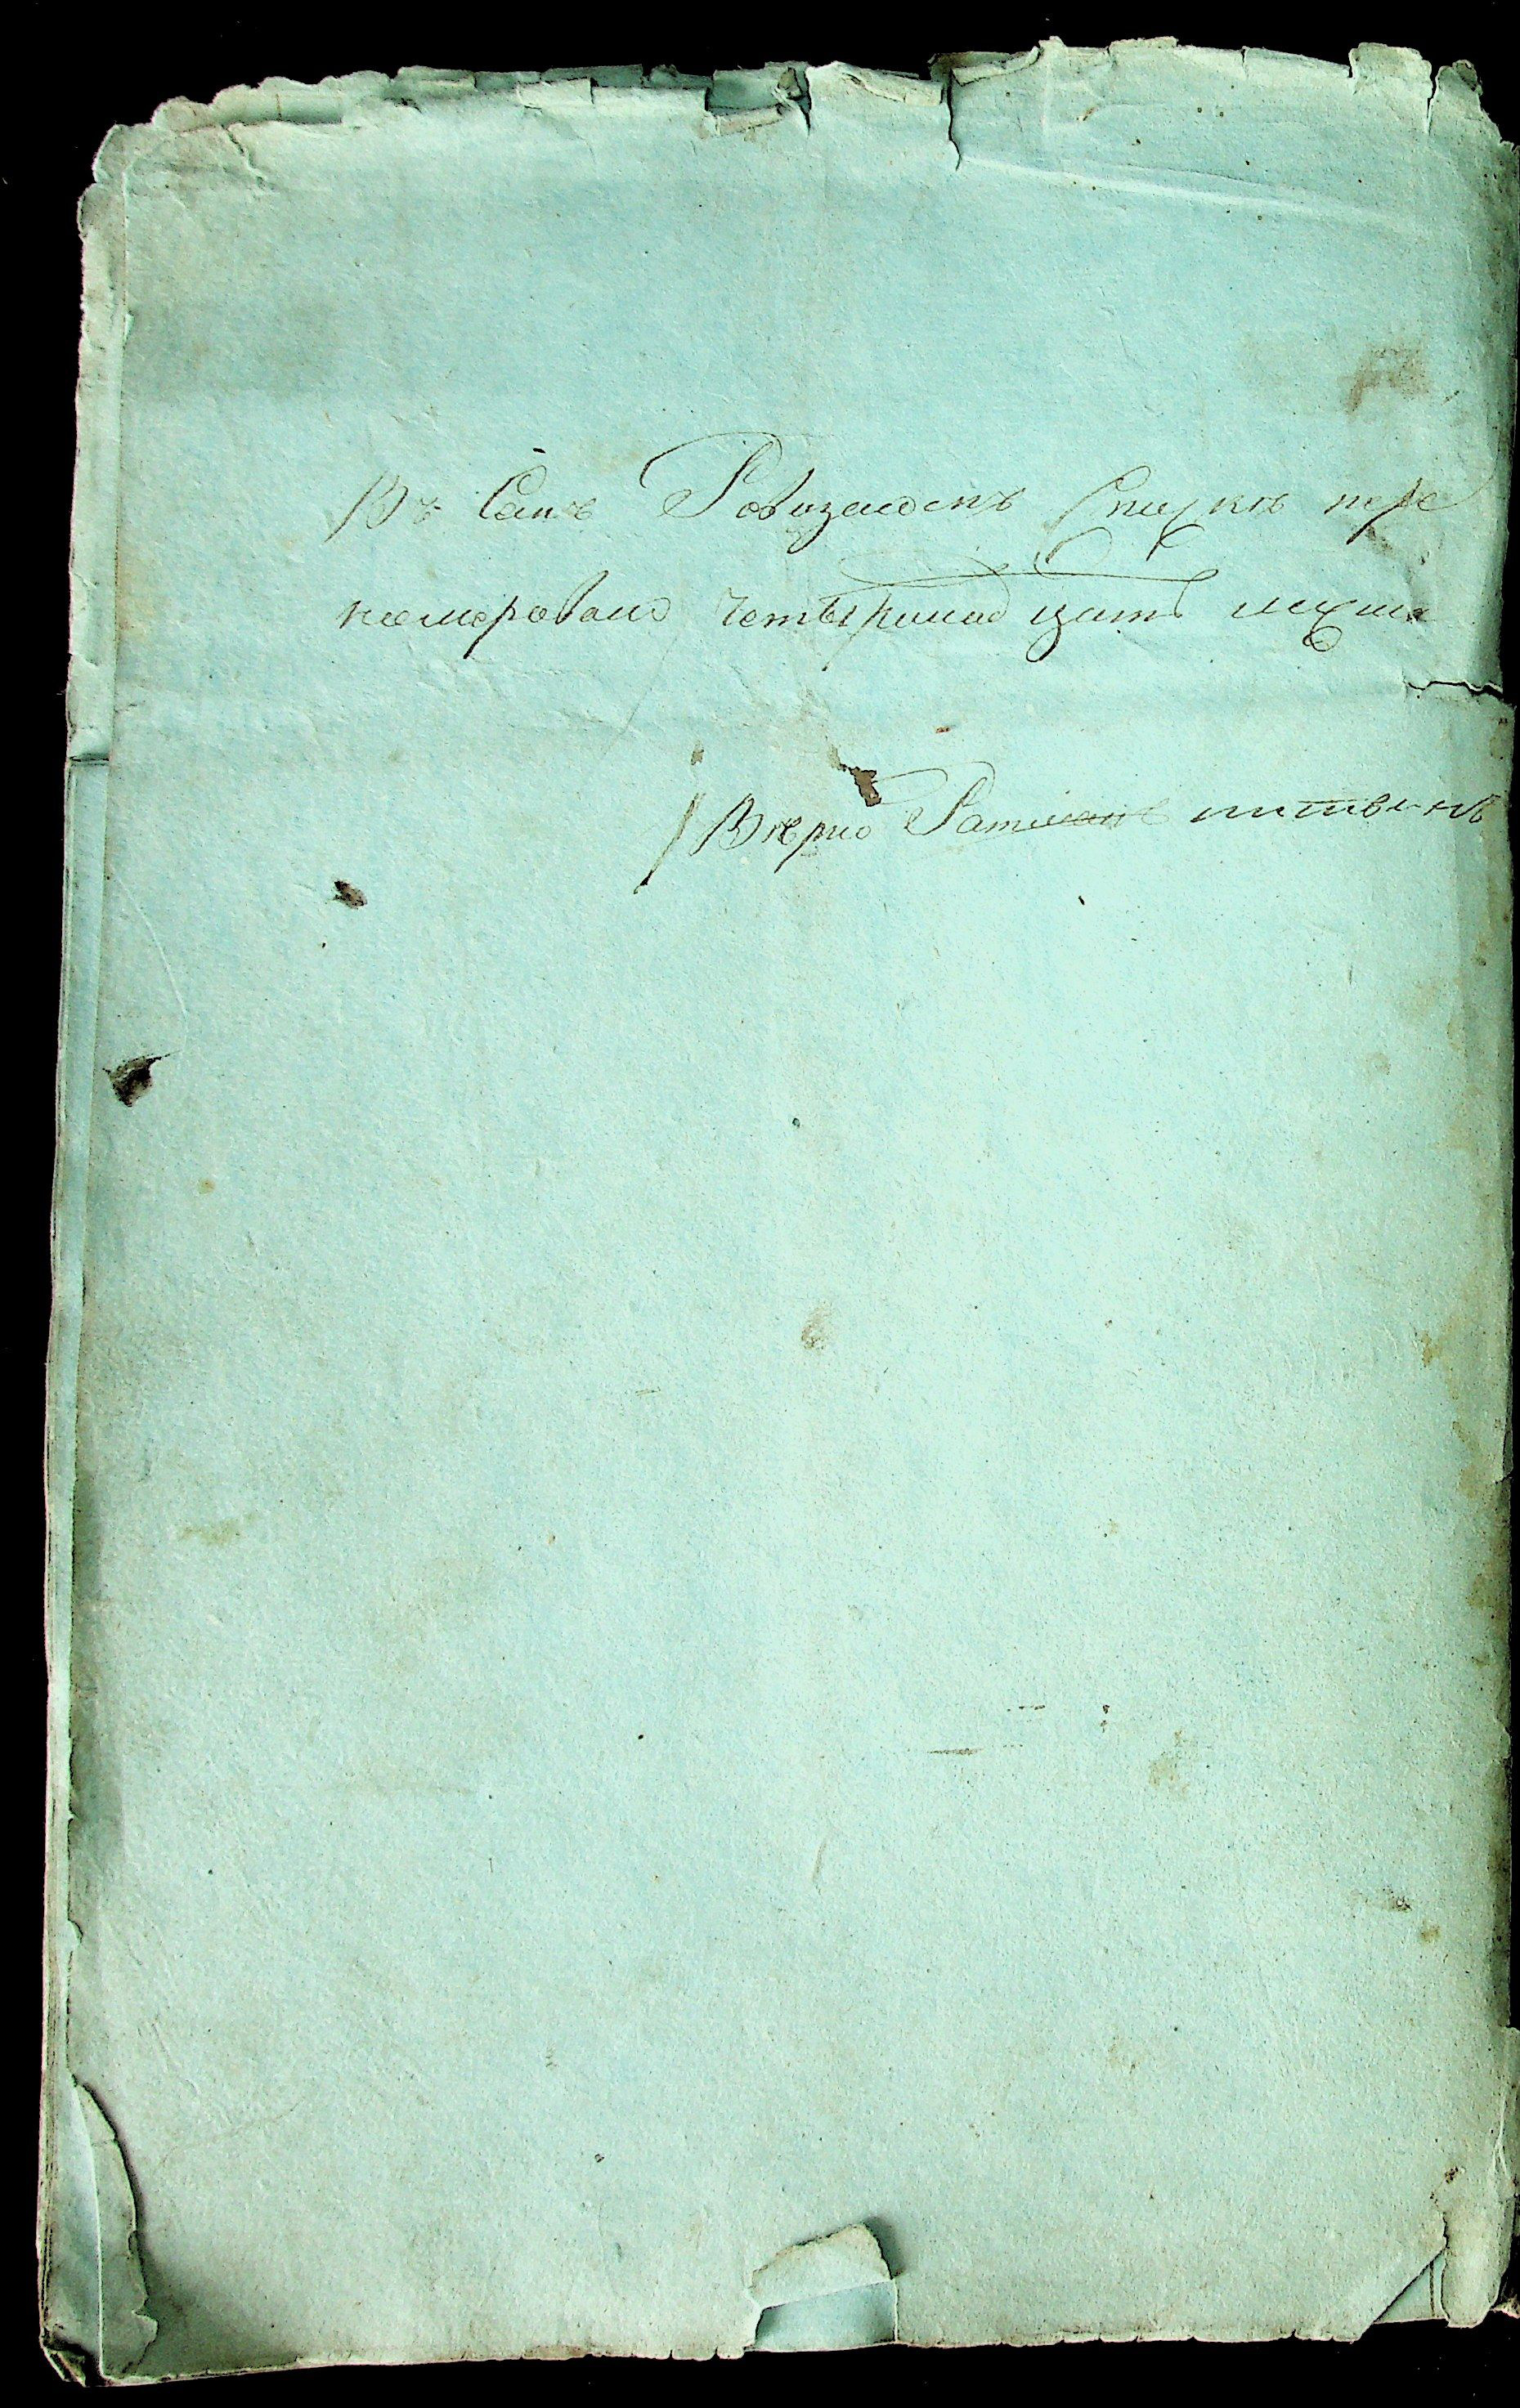 Въ Семъ Ровизскомъ Спискѣ пере
номеровано Четырнад цать лист
Вѣрно Ратманъ Литвинъ